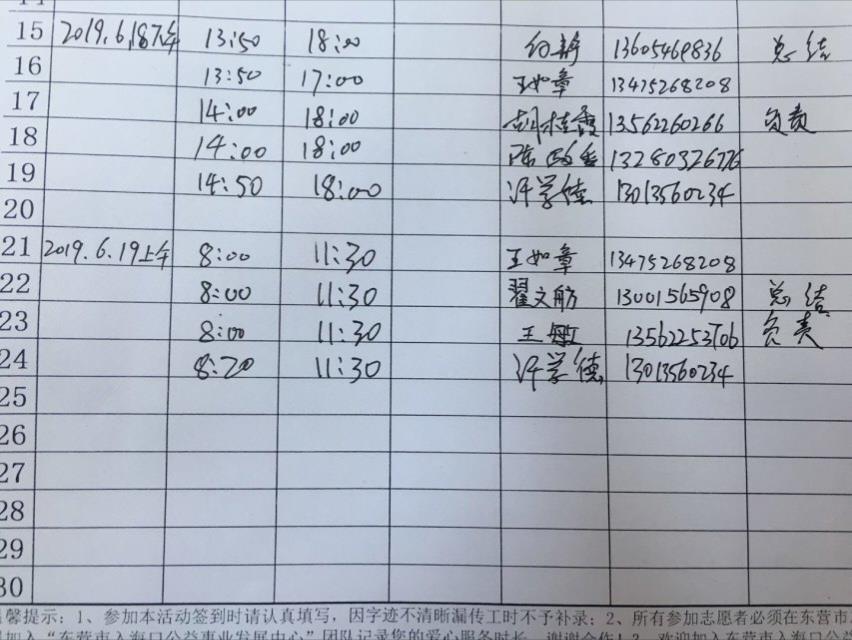 15 2019.6.18下午 13:50 18:00 付静 13605469836 总结
16 13:50 17:00 王如章 13475268208
17 14:00 18:00 胡桂霞 13562260266 负责
18 14:00 18:00 陈 13280326776
19 14:50 18:00 许学德 13013560234
20
21 2019.6.19上午 8:00 11:30 王如章 13475268208
22 8:00 11:30 翟文舫 13001565908 总结
23 8:00 11:30 王敏 13562253706 负责
24 8:20 11:30 许学德 13013560234
25
26
27
28
29
30
馨提示：1、参加本活动签到时请认真填写，因字迹不清晰漏传工时不予补录；2、所有参加志愿者必须在东营市
加入“东营市入海口公益事业发展中心”团队记录您的爱心服务时长，谢谢合作！3、欢迎加入东营市入海口公